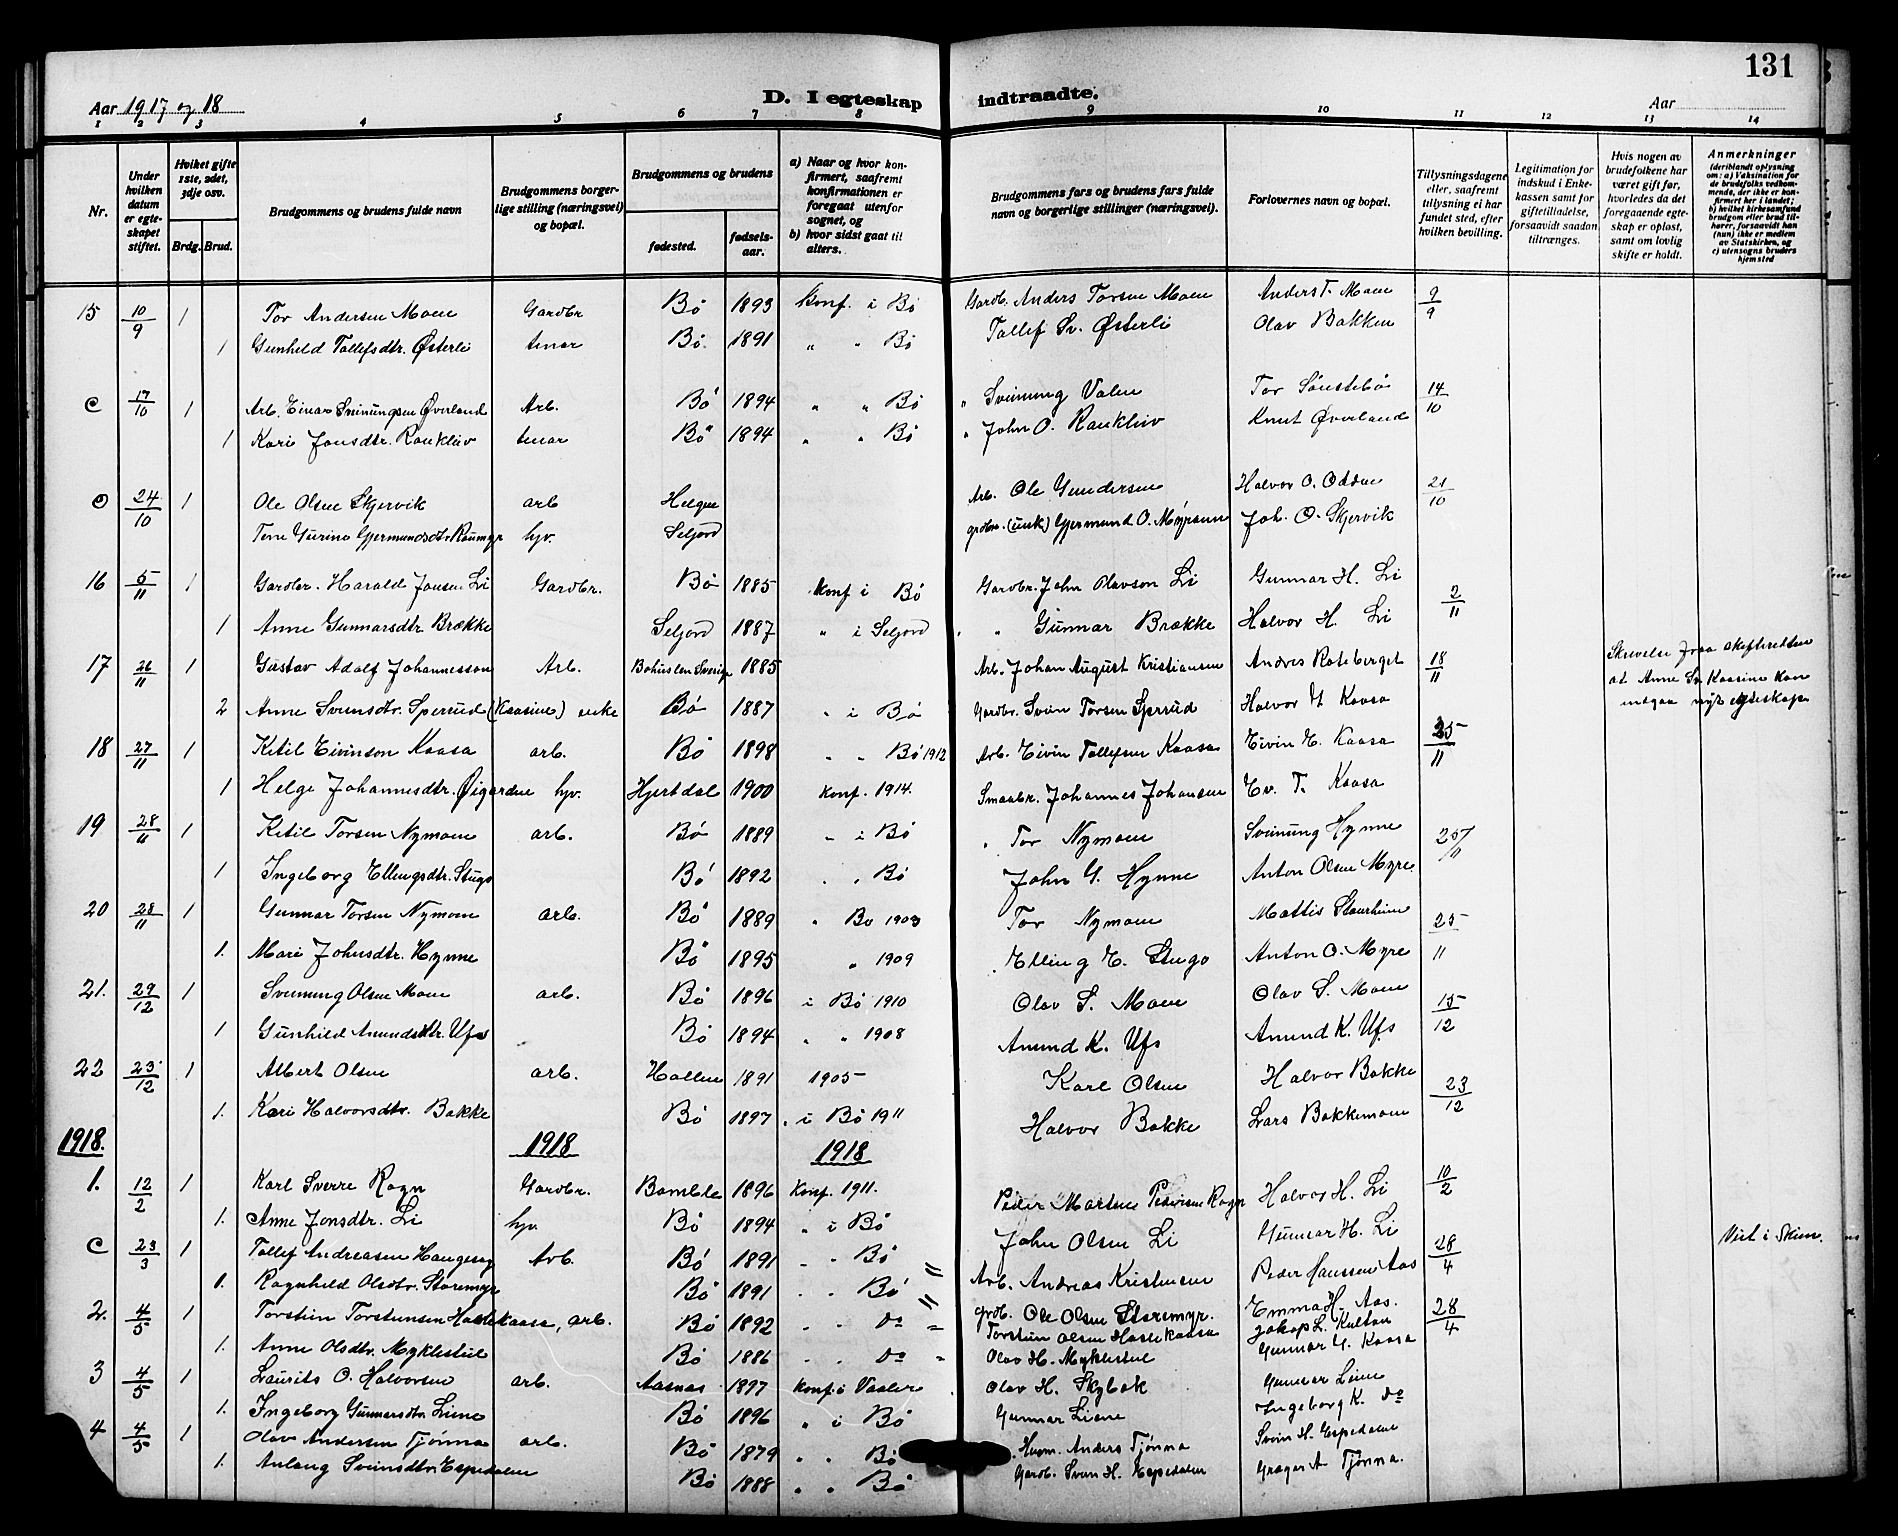 131
Aar 1917 og 18 D. I egteskap indtraadte. Aar
1 2 3 4 5 6 7 8 9 10 11 12 13 14
Nr.
Under hvilken datum er egteskapet stiftet.
Hvilket gifte 1ste, 2det, 3dje osv.
Brdg. Brud.
Brudgommens og brudens fulde navn
Brudgommens borgerlige stilling (næringsvei) og bopæl.
Brudgommens og brudens
fødested. fødselsaar.
a) Naar og hvor konfirmert, saafremt konfirmationen er foregaat utenfor sognet, og
b) hvor sidst gaat til alters.
Brudgommens fars og brudens fars fulde navn og borgerlige stillinger (næringsvei).
Forlovernes navn og bopæl.
Tillysningsdagene eller, saafremt tillysning ei har fundet sted, efter hvilken bevilling.
Legitimation for indskud i Enkekassen samt for giftetilladelse, forsaavidt saadan tiltrænges.
Hvis nogen av brudefolkene har været gift før, hvorledes da det foregaaende egteskap er opløst, samt om lovlig skifte er holdt.
Anmerkninger (deriblandt oplysning om: a) Vaksination for de brudefolks vedkommende, der ikke er konfirmert her i landet; b) hvilket kirkesamfund brudgom eller brud tilhører, forsaavidt han (hun) ikke er medlem av Statskirken, og c) utensogns bruders hjemsted
15 10/9 1 Tor Andersen Moen Gardbr Bø 1893 Konf. i Bø Gardb. Anders Torsen Moen Anders T. Moen 9/9
1 Gunhild Tollefsdtr. Østerli tenar Bø 1891 " " Bø Tollef Sv. Østerli Olav Bakken
C 17/10 1 Arb. Einar Sveinungsen Øverland Arb. Bø 1894 " " Bø " Sveinung Valen Tor Sønstebø 14/10
1 Kari Jonsdtr. Raukleiv tenar Bø 1894 " " Bø " John O. Raukleiv Knut Øverland
O 24/10 1 Ole Olsen Skjervik arb Helgen Arb. Ole Gundersen Halvor O. Odden 21/10
Tone Gurine Gjermundsdtr Raumyr hjv. Seljord grdbr. (unk) Gjermund O. Myrsum Joh. O. Skjervik
16 5/11 1 Gardbr. Harald Jonsen Li Gardbr. Bø 1885 Konf i Bø Gardbr. John Olavson Li Gunnar H. Li 2/11
1 Anne Gunnarsdtr Brække Seljord 1887 " i Seljord " " Gunnar Brække Halvor H. Li
17 26/11 1 Gustav Adolf Johannesson Arb. Bohuslen Sverige 1885 Arb. Johan August Kristiansen Andres Roteberget 18/11 Skrivelse fraa skifteretten
2 Anne Sveinsdtr. Sperrud (Kaasine) enke Bø 1887 " i Bø Gardbr. Svein Torsen Sperrud Halvor G Kaasa at Anne Sv. Kaasine kan
indgaa nyt egteskap
18 27/11 1 Ketil Eivinson Kaasa arb. Bø 1898 " " Bø 1912 Arb. Eivin Tollefsen Kaasa Eivin E. Kaasa 25/11
1 Helge Johannesdtr. Øigarden hjv. Hjertdal 1900 Konf. 1914. Smaabr. Johannes Johansen Ev. T. Kaasa
19 28/11 1 Ketil Torsen Nymoen arb. Bø 1889 " i Bø " Tor Nymoen Sveinung Hynne 25/11
1 Ingeborg Ellingsdtr. Stugo Bø 1892 " " Bø John G. Hynne Anton Olsen Myre
20 28/11 1 Gunnar Torsen Nymoen arb. Bø 1889 " Bø 1903 Tor Nymoen Mattis Staurheim 25
1. Mari Johnsdtr. Hynne Bø 1895 " 1909 " Elling E. Stugo Anton O. Myre 11
21. 29/12 1 Sveinung Olsen Moen arb. Bø 1896 i Bø 1910 Olav S. Moen Olav S. Moen 15/12
1 Gunhild Amundsdtr. Ufs Bø 1894 " " 1908 Amund K. Ufs Amund K. Ufs
22 23/12 1 Albert Olsen arb. Hollen 1891 1905 Karl Olsen Halvor Bakke 23/12
1. Kari Halvorsdtr. Bakke Bø 1897 " i Bø 1911 Halvor Bakke Lars Bakkemoen
1918. 1918 1918
1. 12/2 1 Karl Sverre Rogn Gardbr. Bamble 1896 Konf. 1911. Peder Martin Pedersen Rogn Halvor H. Li 10/2
1. Anne Jonsdtr. Li hjv. Bø 1894 " i Bø John Olsen Li Gunnar H. Li
C 23/3 1 Tollef Andreasen Haugerog Arb. Bø 1891 " " Bø " Arb. Andreas Kristensen Peder Hanssen Aas 28/4 Viet i Skien.
1. Ragnhild Olsdtr. Storemyr Bø 1891 " " Bø " grdb. Ole Olsen Storemyr. Emma H. Aas.
2. 4/5 1 Torstein Torsteinsen Haatekaasa, arb. Bø 1892 " " do " Torstein Olsen Haatekaasa Jakop L. Kulton 28/4
1. Anne Olsdtr. Myklestul Bø 1886 " " do " Olav H. Myklestul Gunnar G. Kaasa
3 4/5 1 Laurits O. Halvorsen arb. Aasnas 1897 Konf. i Vaaler Olav H. Skybak Gunnar Liene
1. Ingeborg Gunnarsdtr. Liene Bø 1896 " i Bø Gunnar Liene Ingeborg K. do
4 4/5 1 Olav Andersen Tjønna arb. Bø 1879 " " Bø Husm. Anders Tjønna Svein H. Espedalen
1. Aslaug Sveinsdtr. Espedalen Bø 1888 " " Bø Gardb. Svein H. Espedalen Gregar A Tjønna.